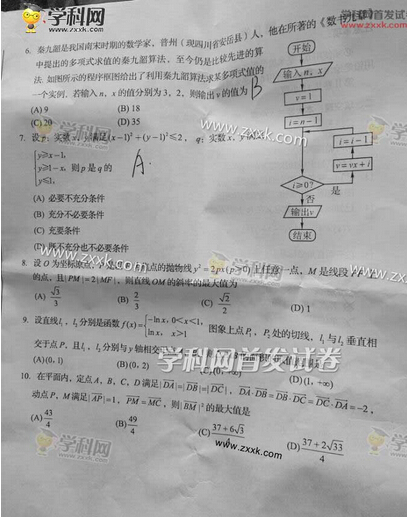 学科网
WWW.ZXXK.COM
学科网首发试
www.zxxk.com
6. 秦九韶是我国南宋时期的数学家，普州（现四川省安岳县）人，他在所著的《数书九章》
中提出的多项式求值的秦九韶算法，至今仍是比较先进的算
法. 如图所示的程序框图给出了利用秦九韶算法求某多项式值的
一个实例. 若输入n，x的值分别为3，2，则输出v的值为 B
(A) 9 (B) 18
(C) 20 (D) 35
开始
输入n，x
v=1
i=n-1
i≥0?
是
v=vx+i
i=i-1
否
输出v
结束
7. 设p：实数x，y满足(x-1)²+(y-1)²≤2，q：实数x，y满足
{y≥x-1,
y≥1-x, 则p是q的 A.
y≤1,
(A) 必要不充分条件
(B) 充分不必要条件
(C) 充要条件
(D) 既不充分也不必要条件
8. 设O为坐标原点，P是以F为焦点的抛物线y²=2px(p>0)上任意一点，M是线段PF上
的点，且|PM|=2|MF|，则直线OM的斜率的最大值为
(A) √3/3 (B) 2/3 (C) √2/2 (D) 1
9. 设直线l₁，l₂分别是函数f(x)={-ln x, 0<x<1, ln x, x>1 图象上点P₁，P₂处的切线，l₁与l₂垂直相
交于点P，且l₁，l₂分别与y轴相交
(A) (0,1) (B) (0,2) (C) (0,+∞) (D) (1,+∞)
学科网首发试卷
10. 在平面内，定点A，B，C，D满足|DA|=|DB|=|DC|，DA·DB=DB·DC=DC·DA=-2，
动点P，M满足|AP|=1，PM=MC，则|BM|²的最大值是
(A) 43/4 (B) 49/4 (C) (37+6√3)/4 (D) (37+2√33)/4
www.zxxk.com